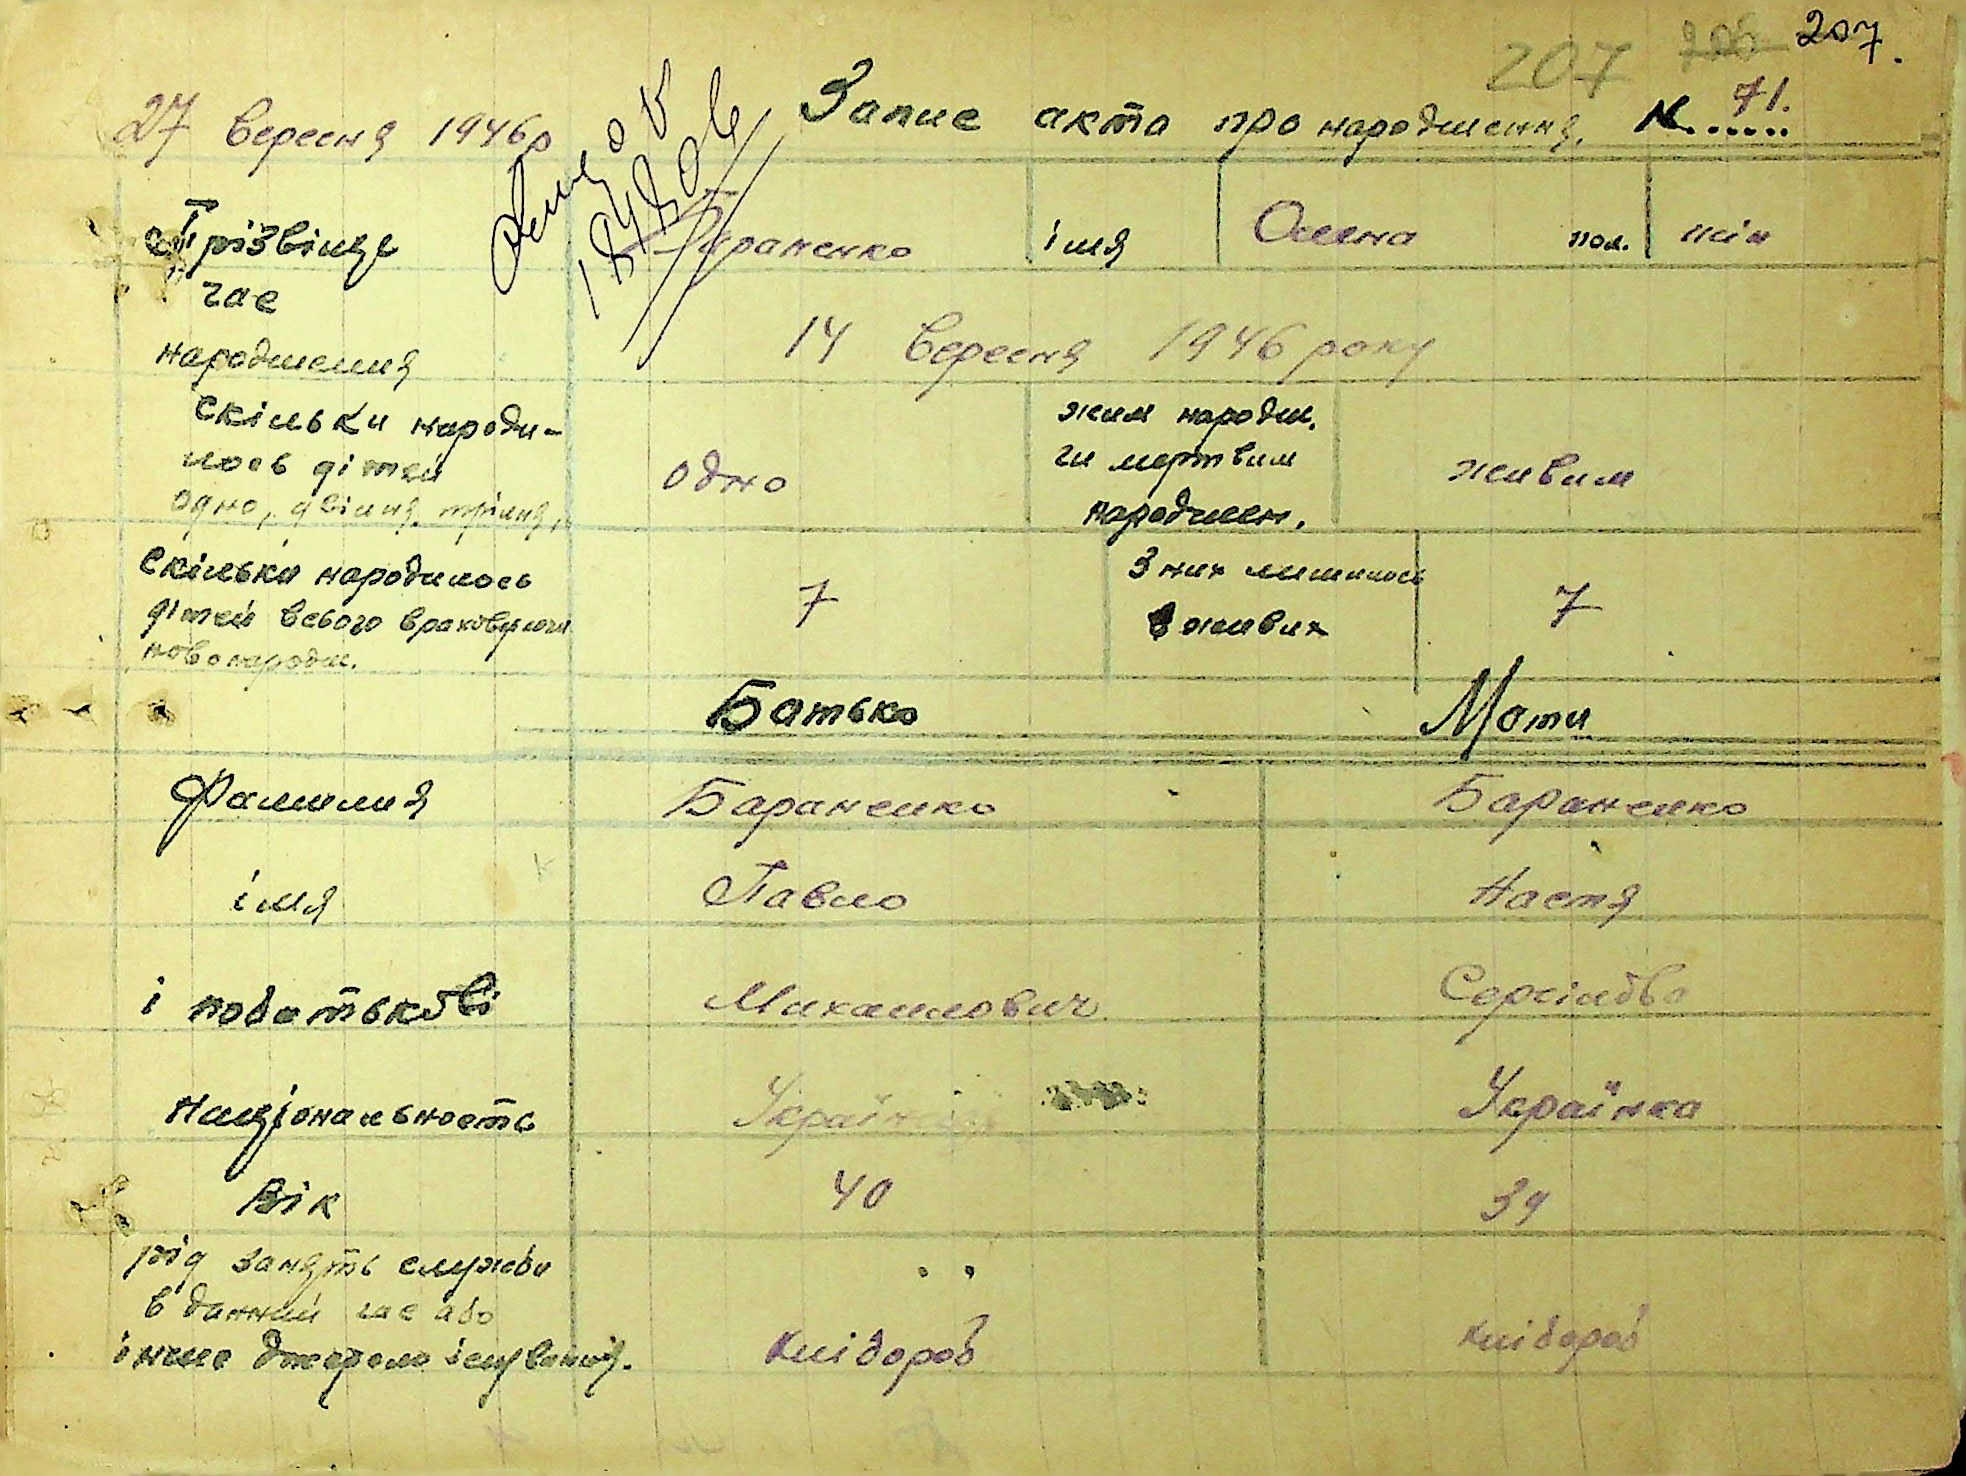 207 207.
27 вересня 1946 р Запис акта про народження, N...... 71.
Прізвіще Бараненко імя Олена пол. жін
час
народження 14 вересня 1946 року
Скільки народи-
лось дітей
одно, двійня, трійня, одно
жим народж.
чи мертвим
народжен. живим
Скілька народилось
дітей всього враховуючи
новонародж. 7
З них лишилось
живих 7
Батько Мати
Фамилия Бараненко Бараненко
імя Павло Настя
і побатькові Михайлович Сергіївна
Національность Україн Українка
Вік 40 39
рід занять служби
в данний час або
інше джерело існування. хлібороб хлібороб